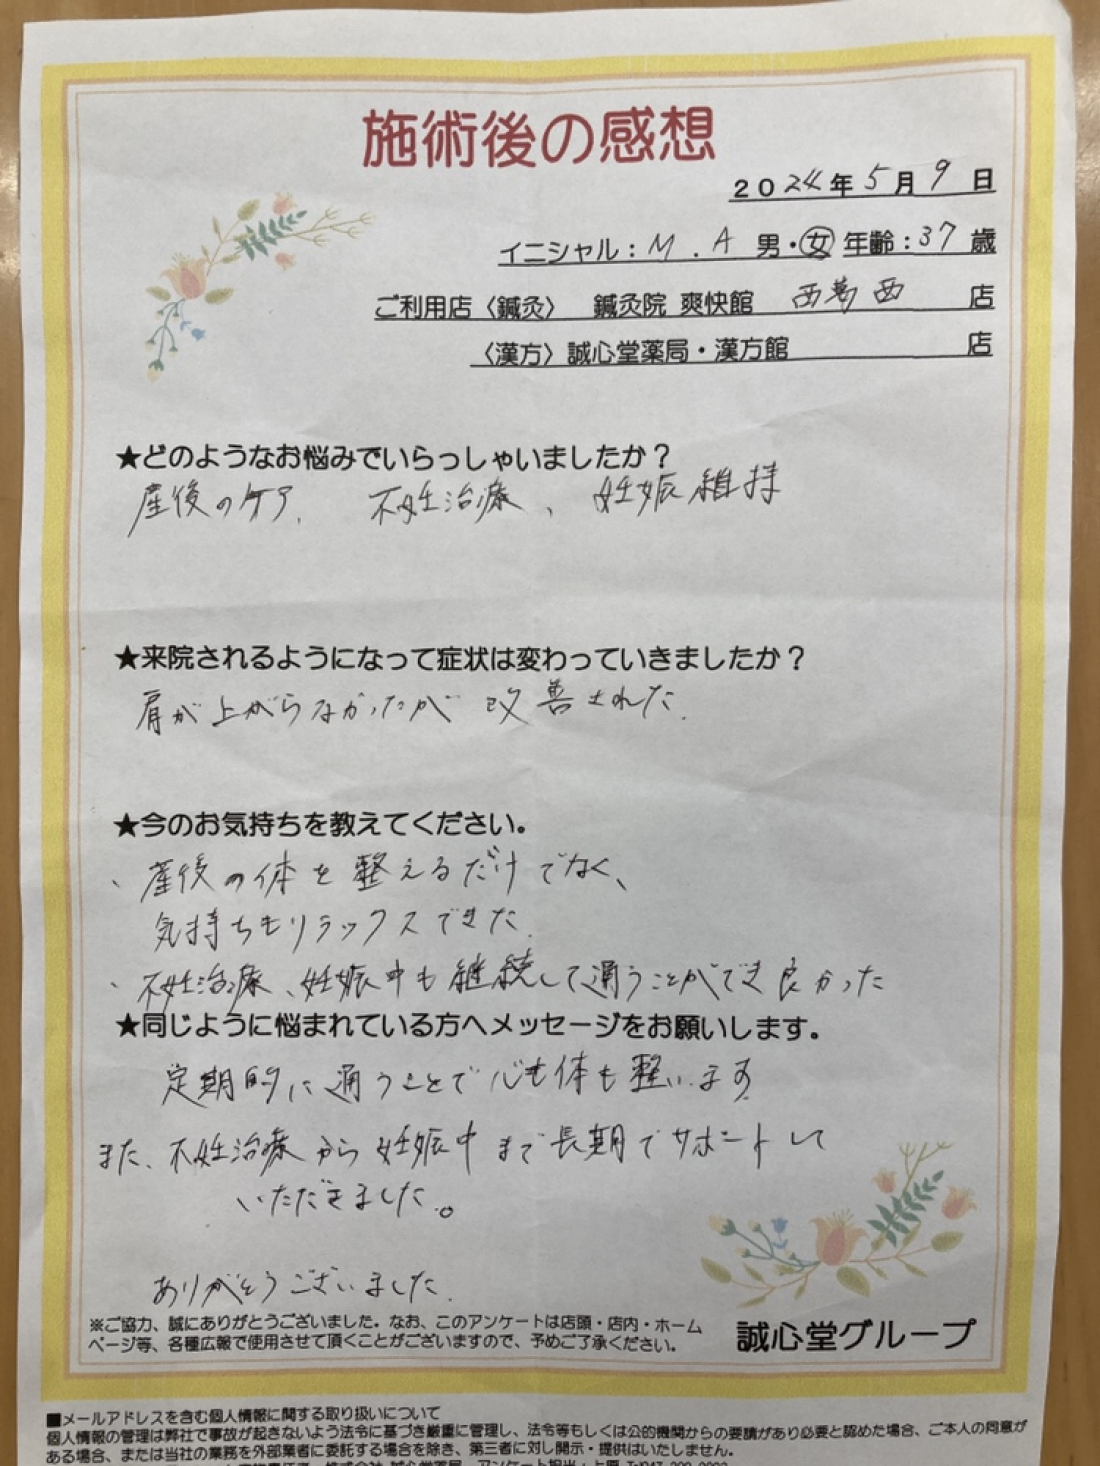 施術後の感想
2024年5月9日
イニシャル：M.A 男・女 年齢：37歳
ご利用店〈鍼灸〉 鍼灸院 爽快館 西葛西 店
〈漢方〉誠心堂薬局・漢方館 店
★どのようなお悩みでいらっしゃいましたか？
産後のケア、不妊治療、妊娠維持
★来院されるようになって症状は変わっていきましたか？
肩が上がらなかったが改善された。
★今のお気持ちを教えてください。
・産後の体を整えるだけでなく、
気持ちもリラックスできた。
・不妊治療、妊娠中も継続して通うことができ良かった
★同じように悩まれている方へメッセージをお願いします。
定期的に通うことで心も体も整います
また、不妊治療から妊娠中まで長期でサポートして
いただきました。
ありがとうございました。
※ご協力、誠にありがとうございました。なお、このアンケートは店頭・店内・ホーム
ページ等、各種広報で使用させて頂くことがございますので、予めご了承ください。
誠心堂グループ
■メールアドレスを含む個人情報に関する取り扱いについて
個人情報の管理は弊社で事故が起きないよう法令に基づき厳重に管理し、法令等もしくは公的機関からの要請があり必要と認めた場合、ご本人の同意が
ある場合、または当社の業務を外部業者に委託する場合を除き、第三者に対し開示・提供はいたしません。